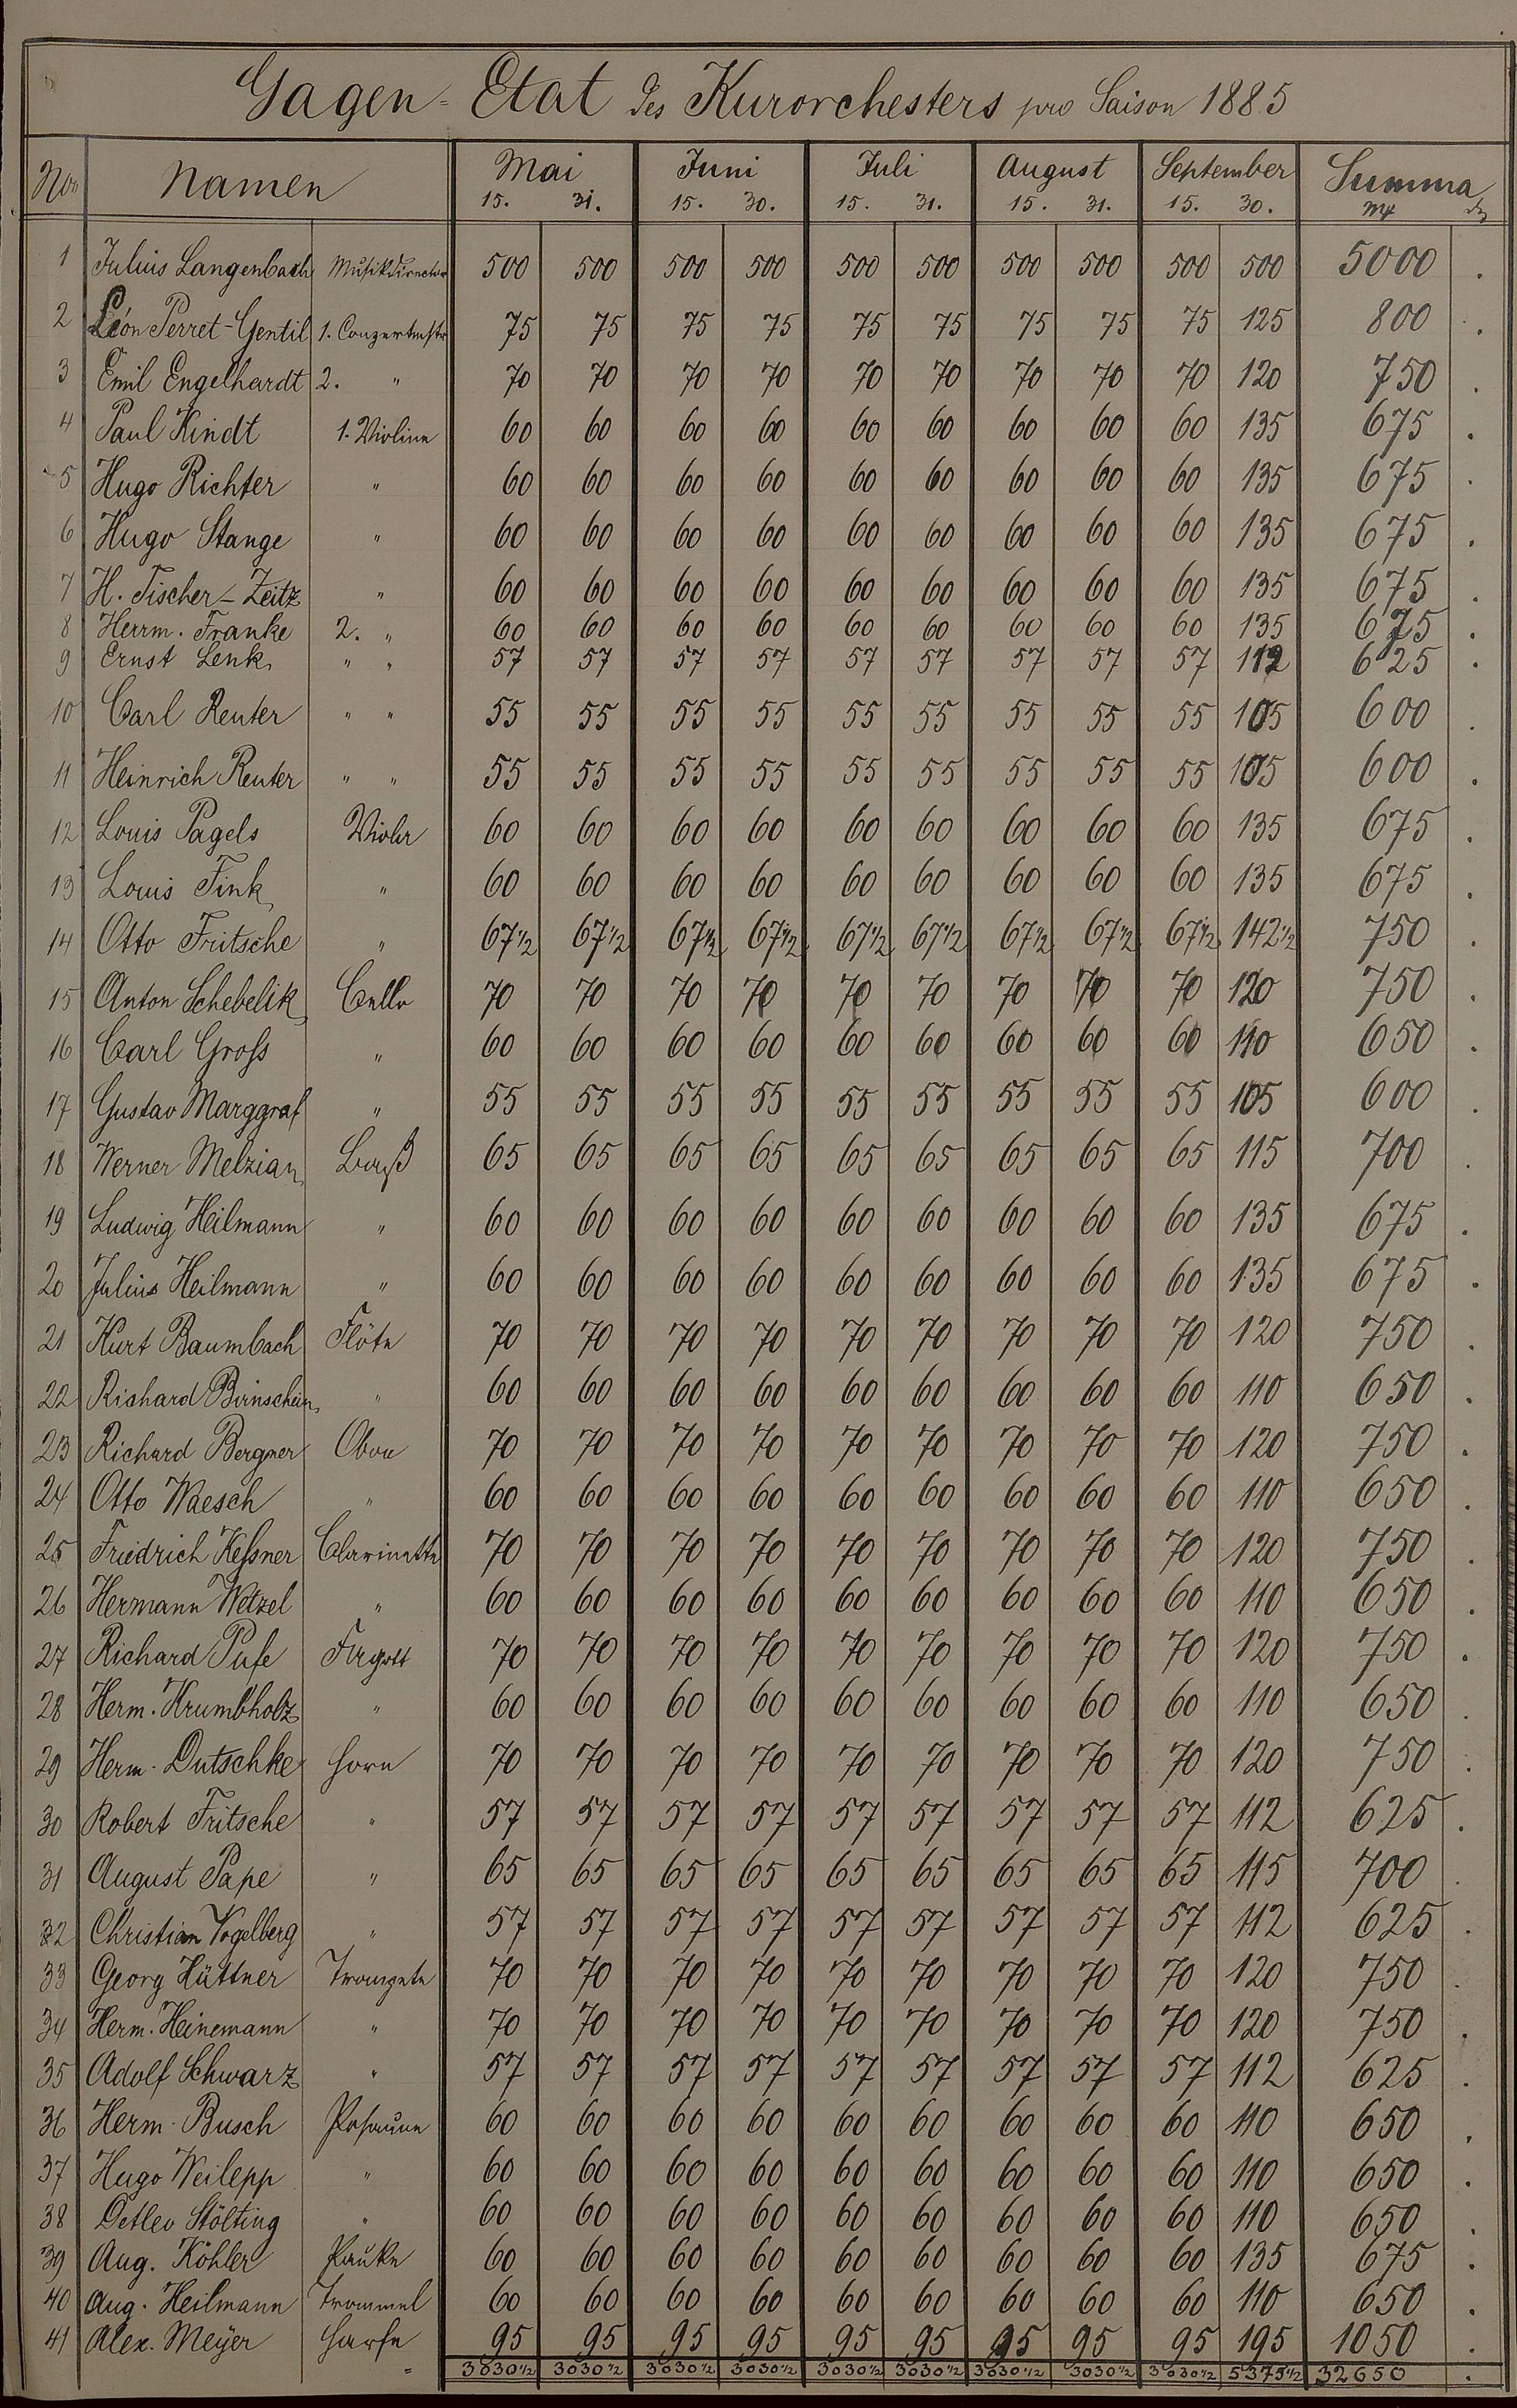 Gagen-Etat des Kurorchesters pro Saison 1885
Nro Namen Mai Juni Juli August September Summa
15. 31. 15. 30. 15. 31. 15. 31. 15. 30. M
1 Julius Langenbach Musikdirector 500 500 500 500 500 500 500 500 500 500 5000 .
2 Léon Perret-Gentil 1. Conzertmstr 75 75 75 75 75 75 75 75 75 125 800 .
3 Emil Engelhardt 2. " 70 70 70 70 70 70 70 70 70 120 750 .
4 Paul Kindt 1. Violine 60 60 60 60 60 60 60 60 60 135 675 .
5 Hugo Richter " 60 60 60 60 60 60 60 60 60 135 675 .
6 Hugo Stange " 60 60 60 60 60 60 60 60 60 135 675 .
7 H. Fischer-Zeitz " 60 60 60 60 60 60 60 60 60 135 675 .
8 Herrm. Franke 2. " 60 60 60 60 60 60 60 60 60 135 675 .
9 Ernst Lenk " " 57 57 57 57 57 57 57 57 57 112 625 .
10 Carl Reuter " " 55 55 55 55 55 55 55 55 55 105 600 .
11 Heinrich Reuter " " 55 55 55 55 55 55 55 55 55 105 600 .
12 Louis Pagels Viola 60 60 60 60 60 60 60 60 60 135 675 .
13 Louis Fink " 60 60 60 60 60 60 60 60 60 135 675 .
14 Otto Fritsche " 67 1/2 67 1/2 67 1/2 67 1/2 67 1/2 67 1/2 67 1/2 67 1/2 67 1/2 142 1/2 750 .
15 Anton Schebelik Cello 70 70 70 70 70 70 70 70 70 120 750 .
16 Carl Groß " 60 60 60 60 60 60 60 60 60 110 650 .
17 Gustav Marggraf " 55 55 55 55 55 55 55 55 55 105 600 .
18 Werner Melzian Bass 65 65 65 65 65 65 65 65 65 115 700 .
19 Ludwig Heilmann " 60 60 60 60 60 60 60 60 60 135 675 .
20 Julius Heilmann " 60 60 60 60 60 60 60 60 60 135 675 .
21 Kurt Baumbach Flöte 70 70 70 70 70 70 70 70 70 120 750 .
22 Richard Birnschein " 60 60 60 60 60 60 60 60 60 110 650 .
23 Richard Bergner Oboe 70 70 70 70 70 70 70 70 70 120 750 .
24 Otto Waesch " 60 60 60 60 60 60 60 60 60 110 650 .
25 Friedrich Keßner Clarinette 70 70 70 70 70 70 70 70 70 120 750 .
26 Hermann Wetzel " 60 60 60 60 60 60 60 60 60 110 650 .
27 Richard Pufe Fagott 70 70 70 70 70 70 70 70 70 120 750 .
28 Herm. Krumbholz " 60 60 60 60 60 60 60 60 60 110 650 .
29 Herm. Dutschke Horn 70 70 70 70 70 70 70 70 70 120 750 .
30 Robert Fritsche " 57 57 57 57 57 57 57 57 57 112 625 .
31 August Pape " 65 65 65 65 65 65 65 65 65 115 700 .
32 Christian Vogelberg " 57 57 57 57 57 57 57 57 57 112 625 .
33 Georg Hüttner Trompete 70 70 70 70 70 70 70 70 70 120 750 .
34 Herm. Heinemann " 70 70 70 70 70 70 70 70 70 120 750 .
35 Adolf Schwarz " 57 57 57 57 57 57 57 57 57 112 625 .
36 Herm. Busch Posaune 60 60 60 60 60 60 60 60 60 110 650 .
37 Hugo Weilepp " 60 60 60 60 60 60 60 60 60 110 650 .
38 Detlev Stölting " 60 60 60 60 60 60 60 60 60 110 650 .
39 Aug. Köhler Pauke 60 60 60 60 60 60 60 60 60 135 675 .
40 Aug. Heilmann Trommel 60 60 60 60 60 60 60 60 60 110 650 .
41 Alex. Meÿer Harfe 95 95 95 95 95 95 95 95 95 195 1050 .
= 3030 1/2 3030 1/2 3030 1/2 3030 1/2 3030 1/2 3030 1/2 3030 1/2 3030 1/2 3030 1/2 5375 1/2 32650 .